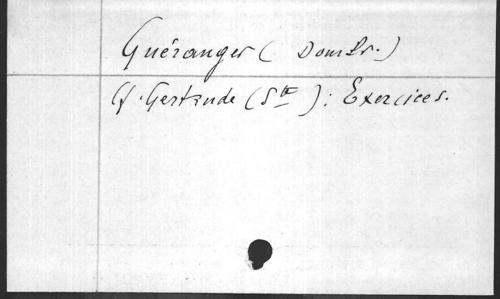 Guéranger (Dom Pr.)
Cf. Gertrude (Ste) : Exercices.